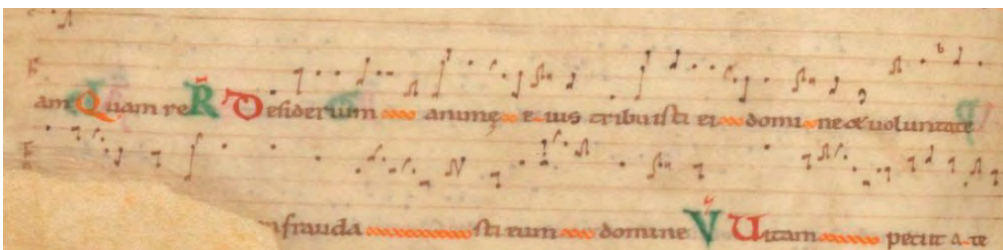 am Quam re R Desiderium animę eius tribuisti ei domine & voluntate
nfrauda sti eum domine V Uitam petiit a te